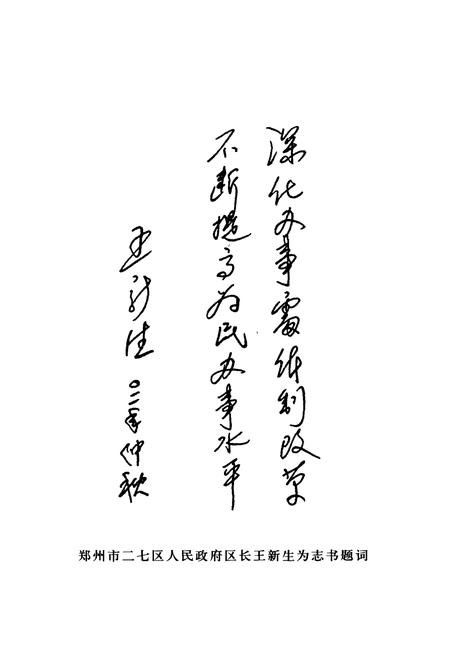 深化办事處体制改革
不断提高为民办事水平
王新生 〇二年仲秋
郑州市二七区人民政府区长王新生为志书题词